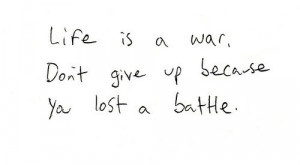 Life is a war.
Don't give up because
Ya lost a battle.